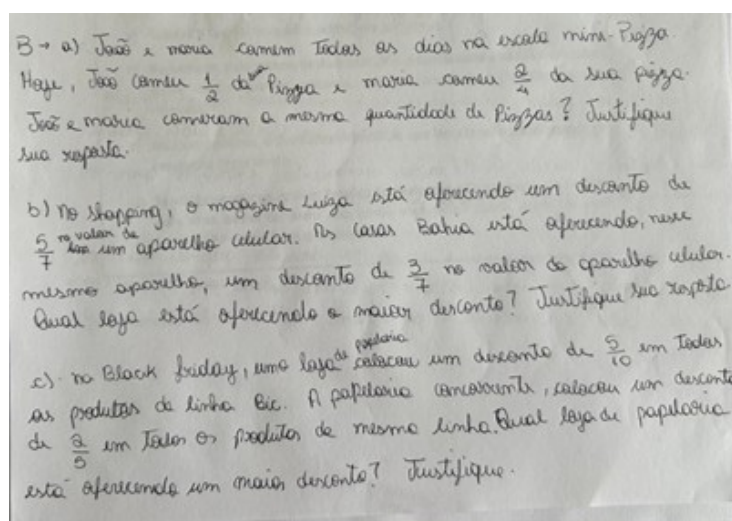 B → a) João e maria comem Todos os dias na escola mini-Pizza.
Hoje, João comeu 1/2 da sua Pizza e maria comeu 2/4 da sua pizza.
João e maria comeram a mesma quantidade de Pizzas? Justifique
sua resposta.
b) no shopping, o magazine Luiza está oferecendo um desconto de
5/7 no valor de um aparelho celular. As casas Bahia está oferecendo, nesse
mesmo aparelho, um desconto de 3/7 no valor do aparelho celular.
Qual loja está oferecendo o maior desconto? Justifique sua resposta
c) no Black friday, uma loja de papelaria colocou um desconto de 5/10 em todos
os produtos da linha Bic. A papelaria concorrente, colocou um desconto
de 2/5 em Todos os produtos da mesma linha. Qual loja de papelaria
está oferecendo um maior desconto? Justifique.